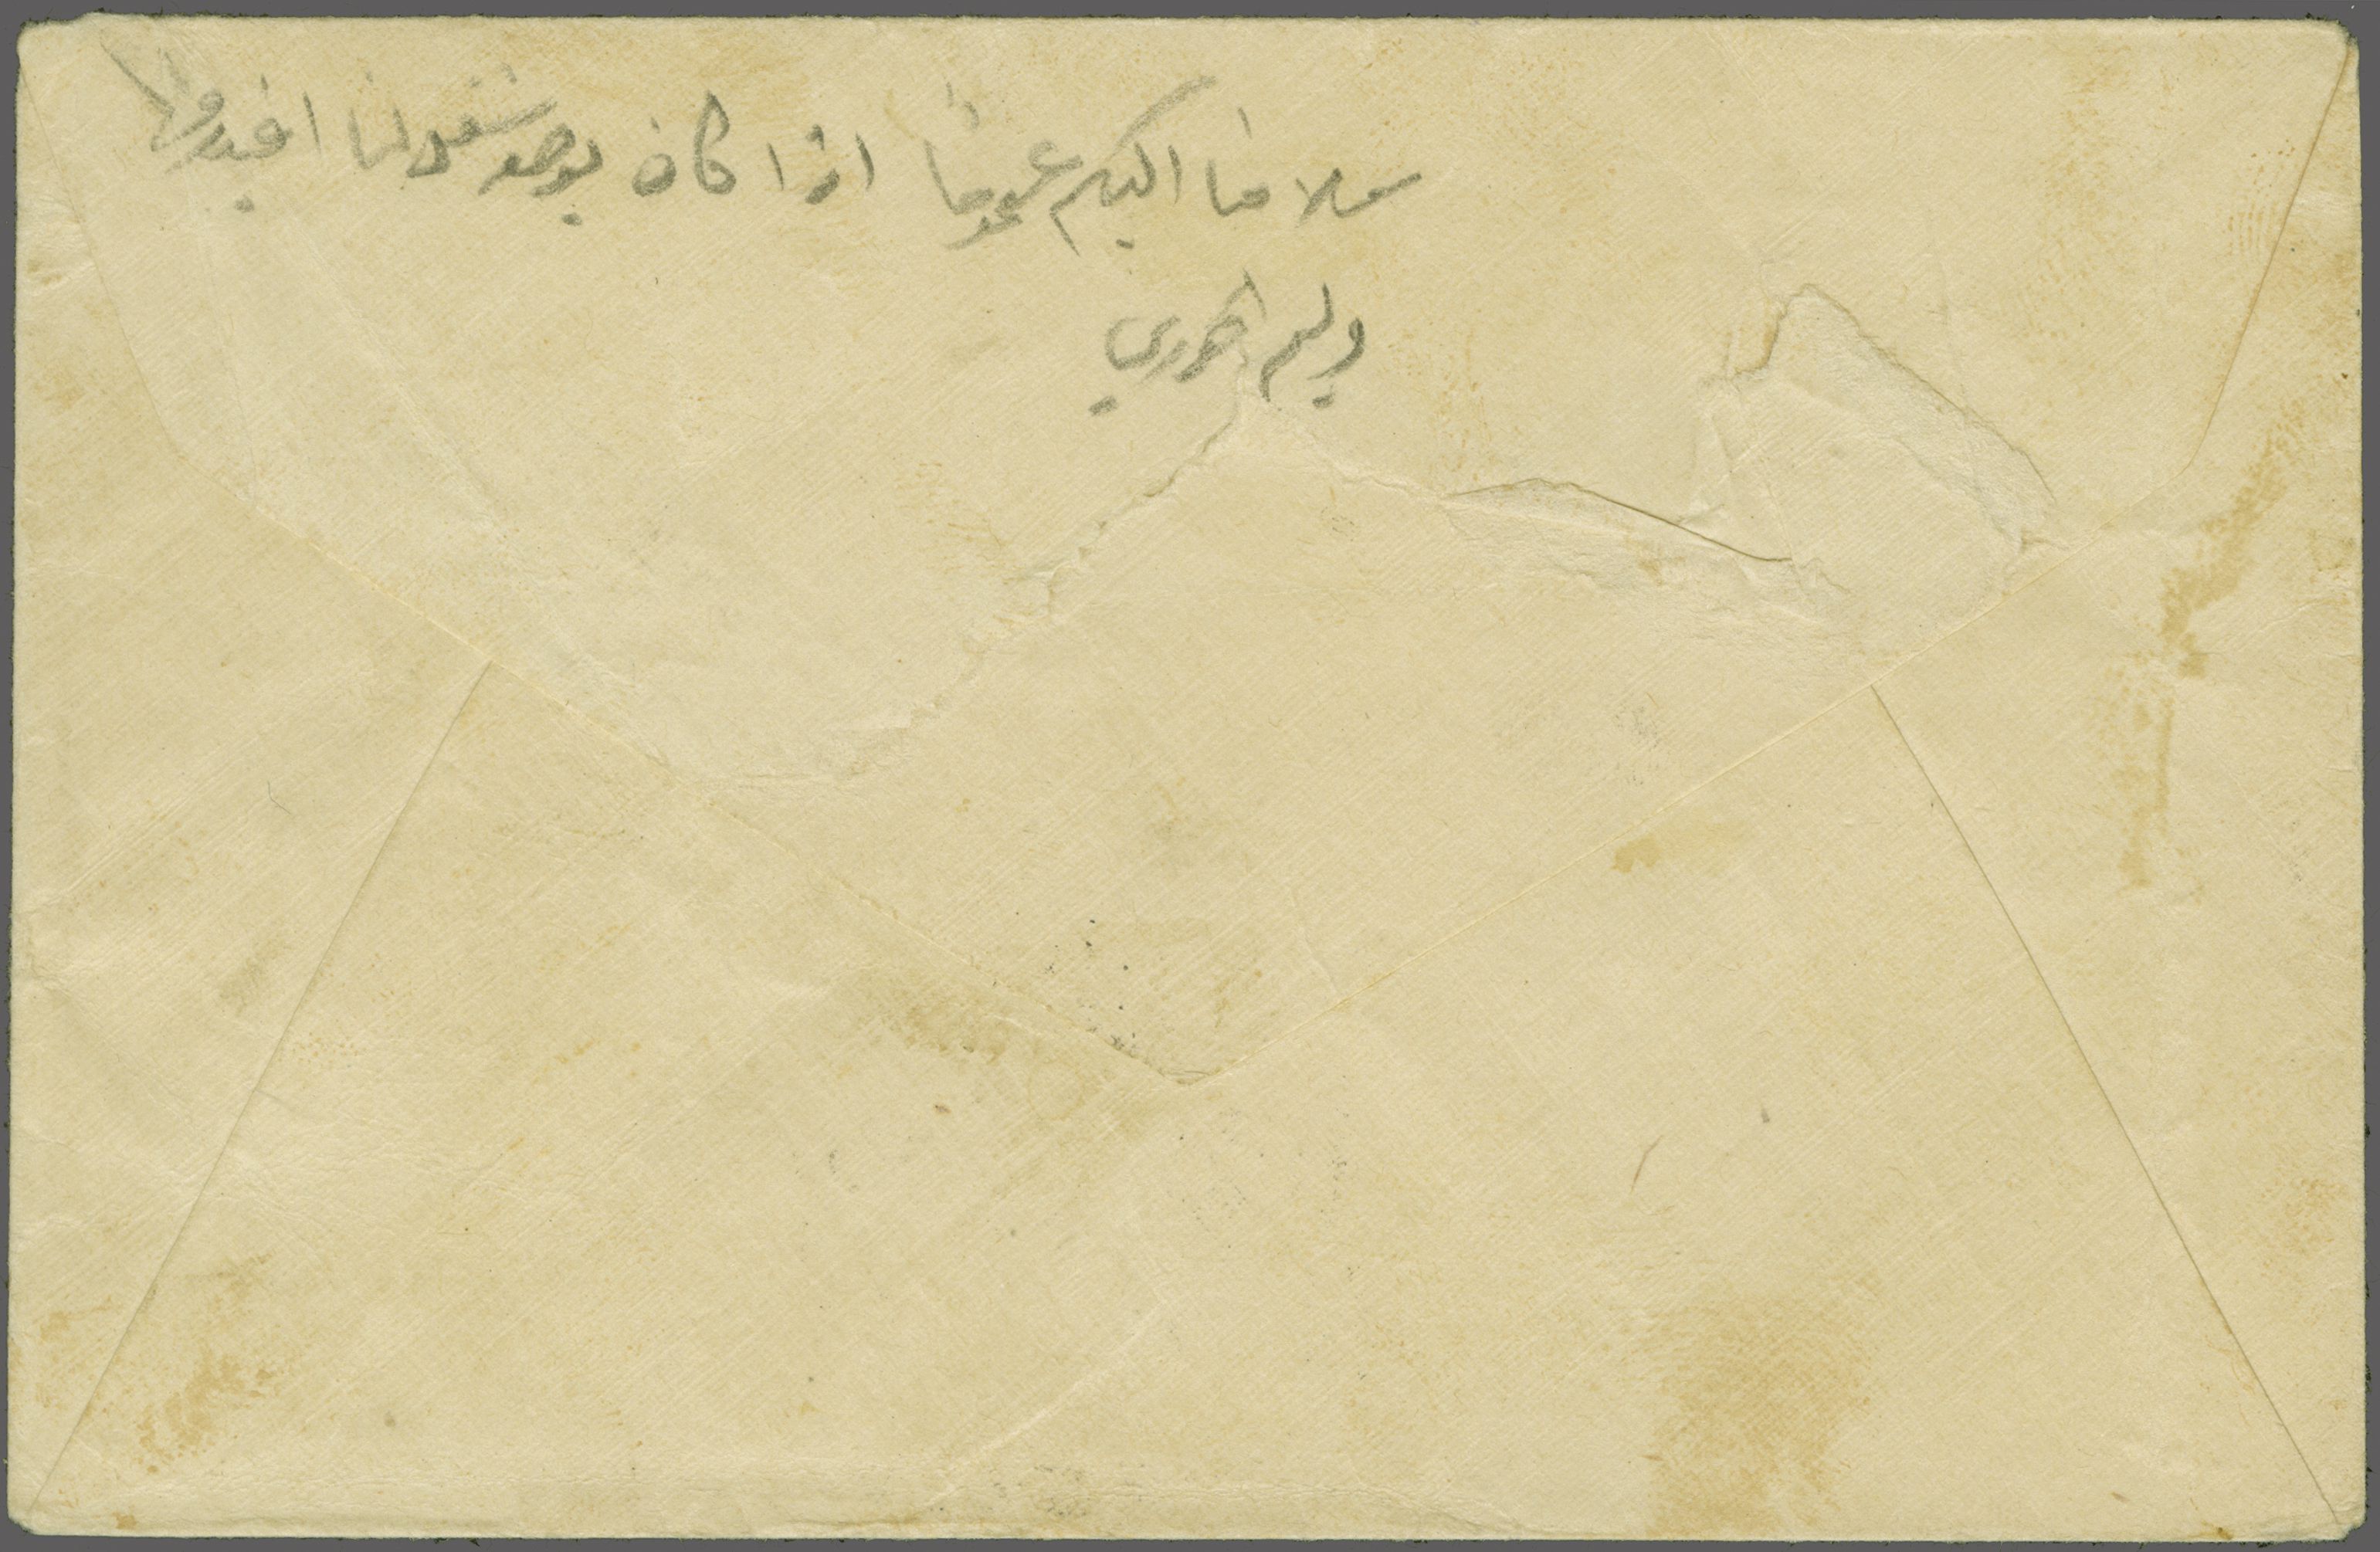 سلامنا اليكم عموماً اذا كان يوجد شغل لنا افيدونا
وليم الخوري